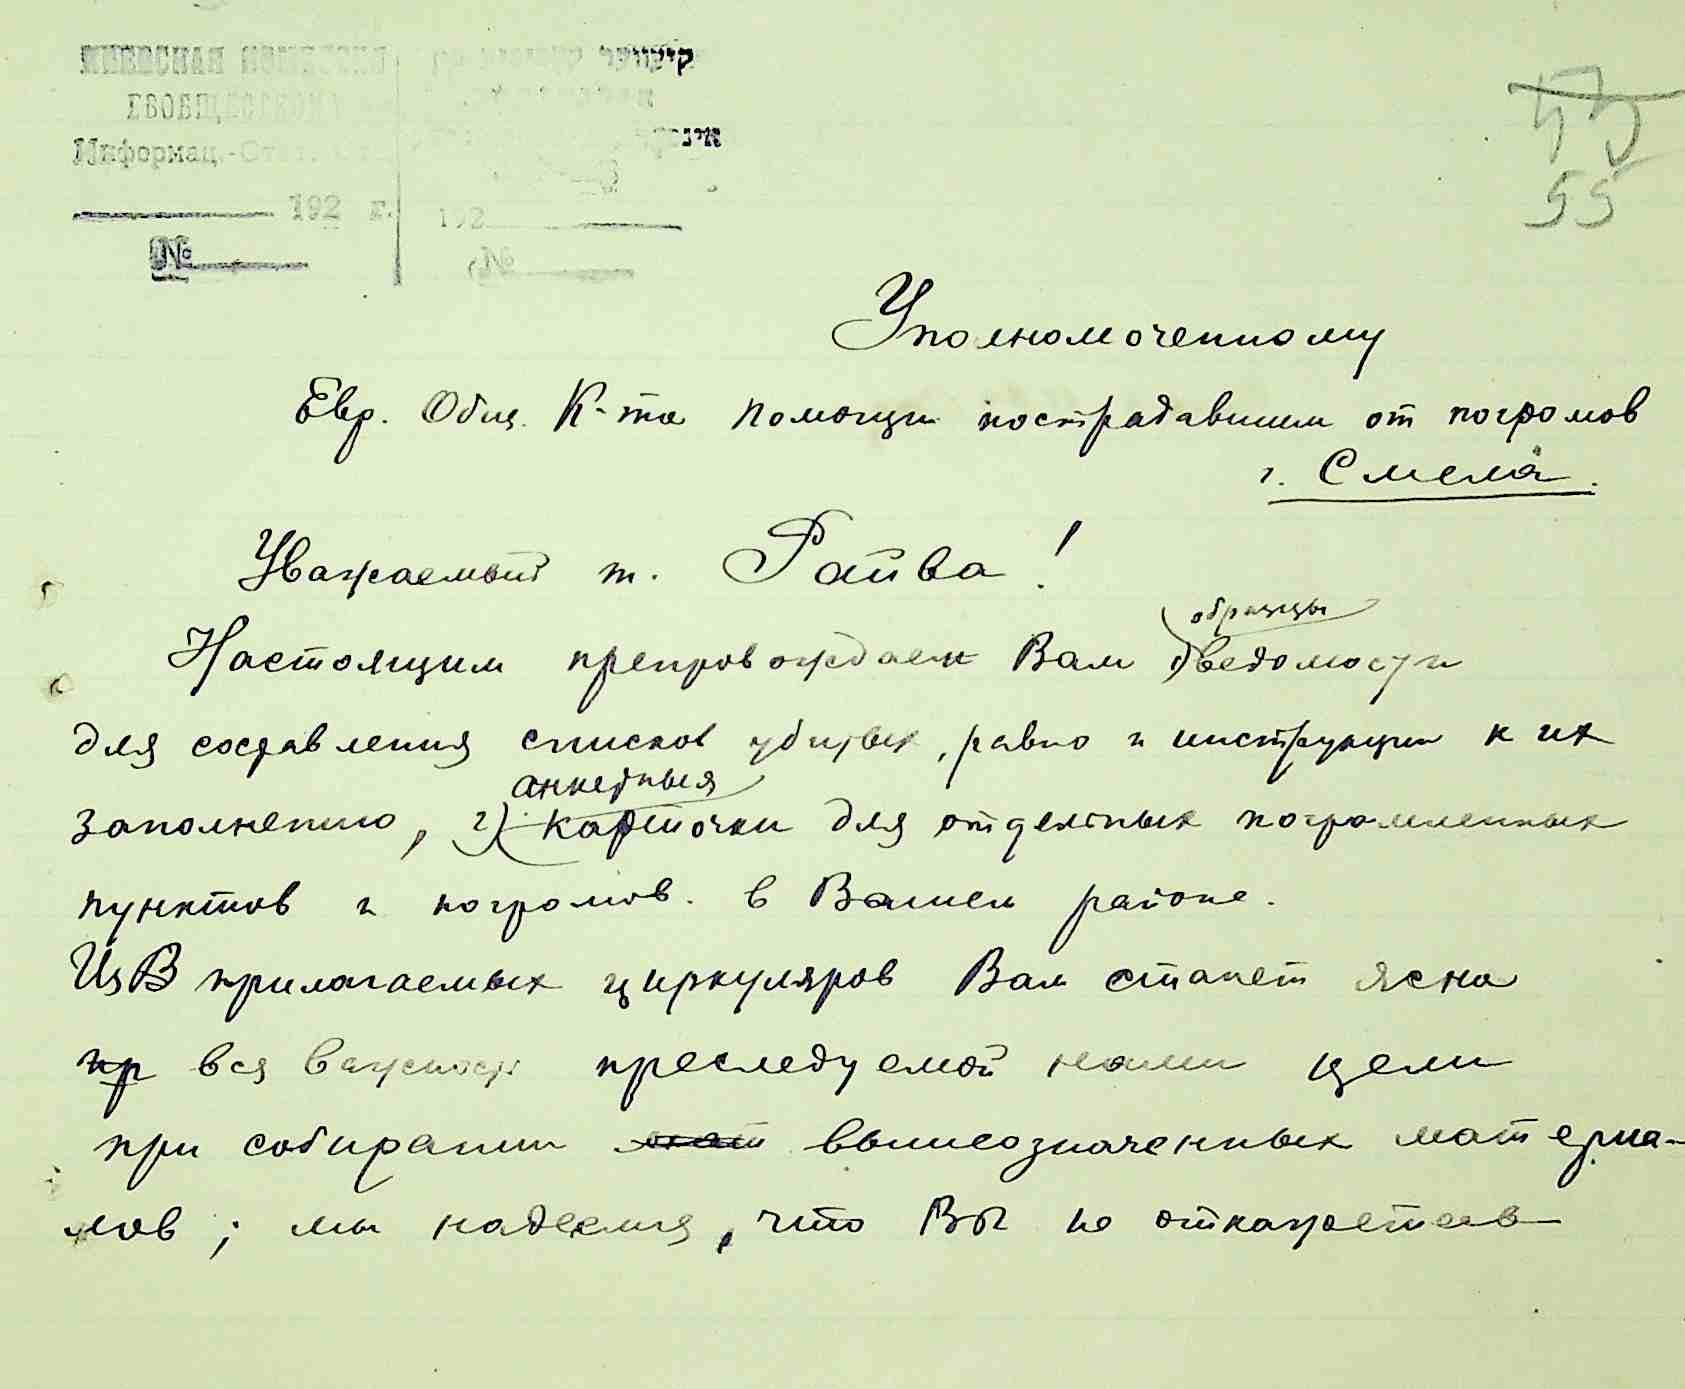 Информац.-
192 г. 192
№ №
55
Уполномоченному
Евр. Общ. К-та помощи пострадавшим от погромов
г. Смела.
Уважаемый т. Райва!
образцы
Настоящим препровождаем Вам ведомости
для составления списков убитых, равно и инструкции к их
анкетные
заполнению, 2) карточки для отдельных погромленных
пунктов и погромов. в Вашем районе.
Из прилагаемых циркуляров Вам станет ясна
пр вся важность преследуемой нами цели
при собирании мат вышеозначенных материа-
лов; мы надеемся, что Вы не откажетесь